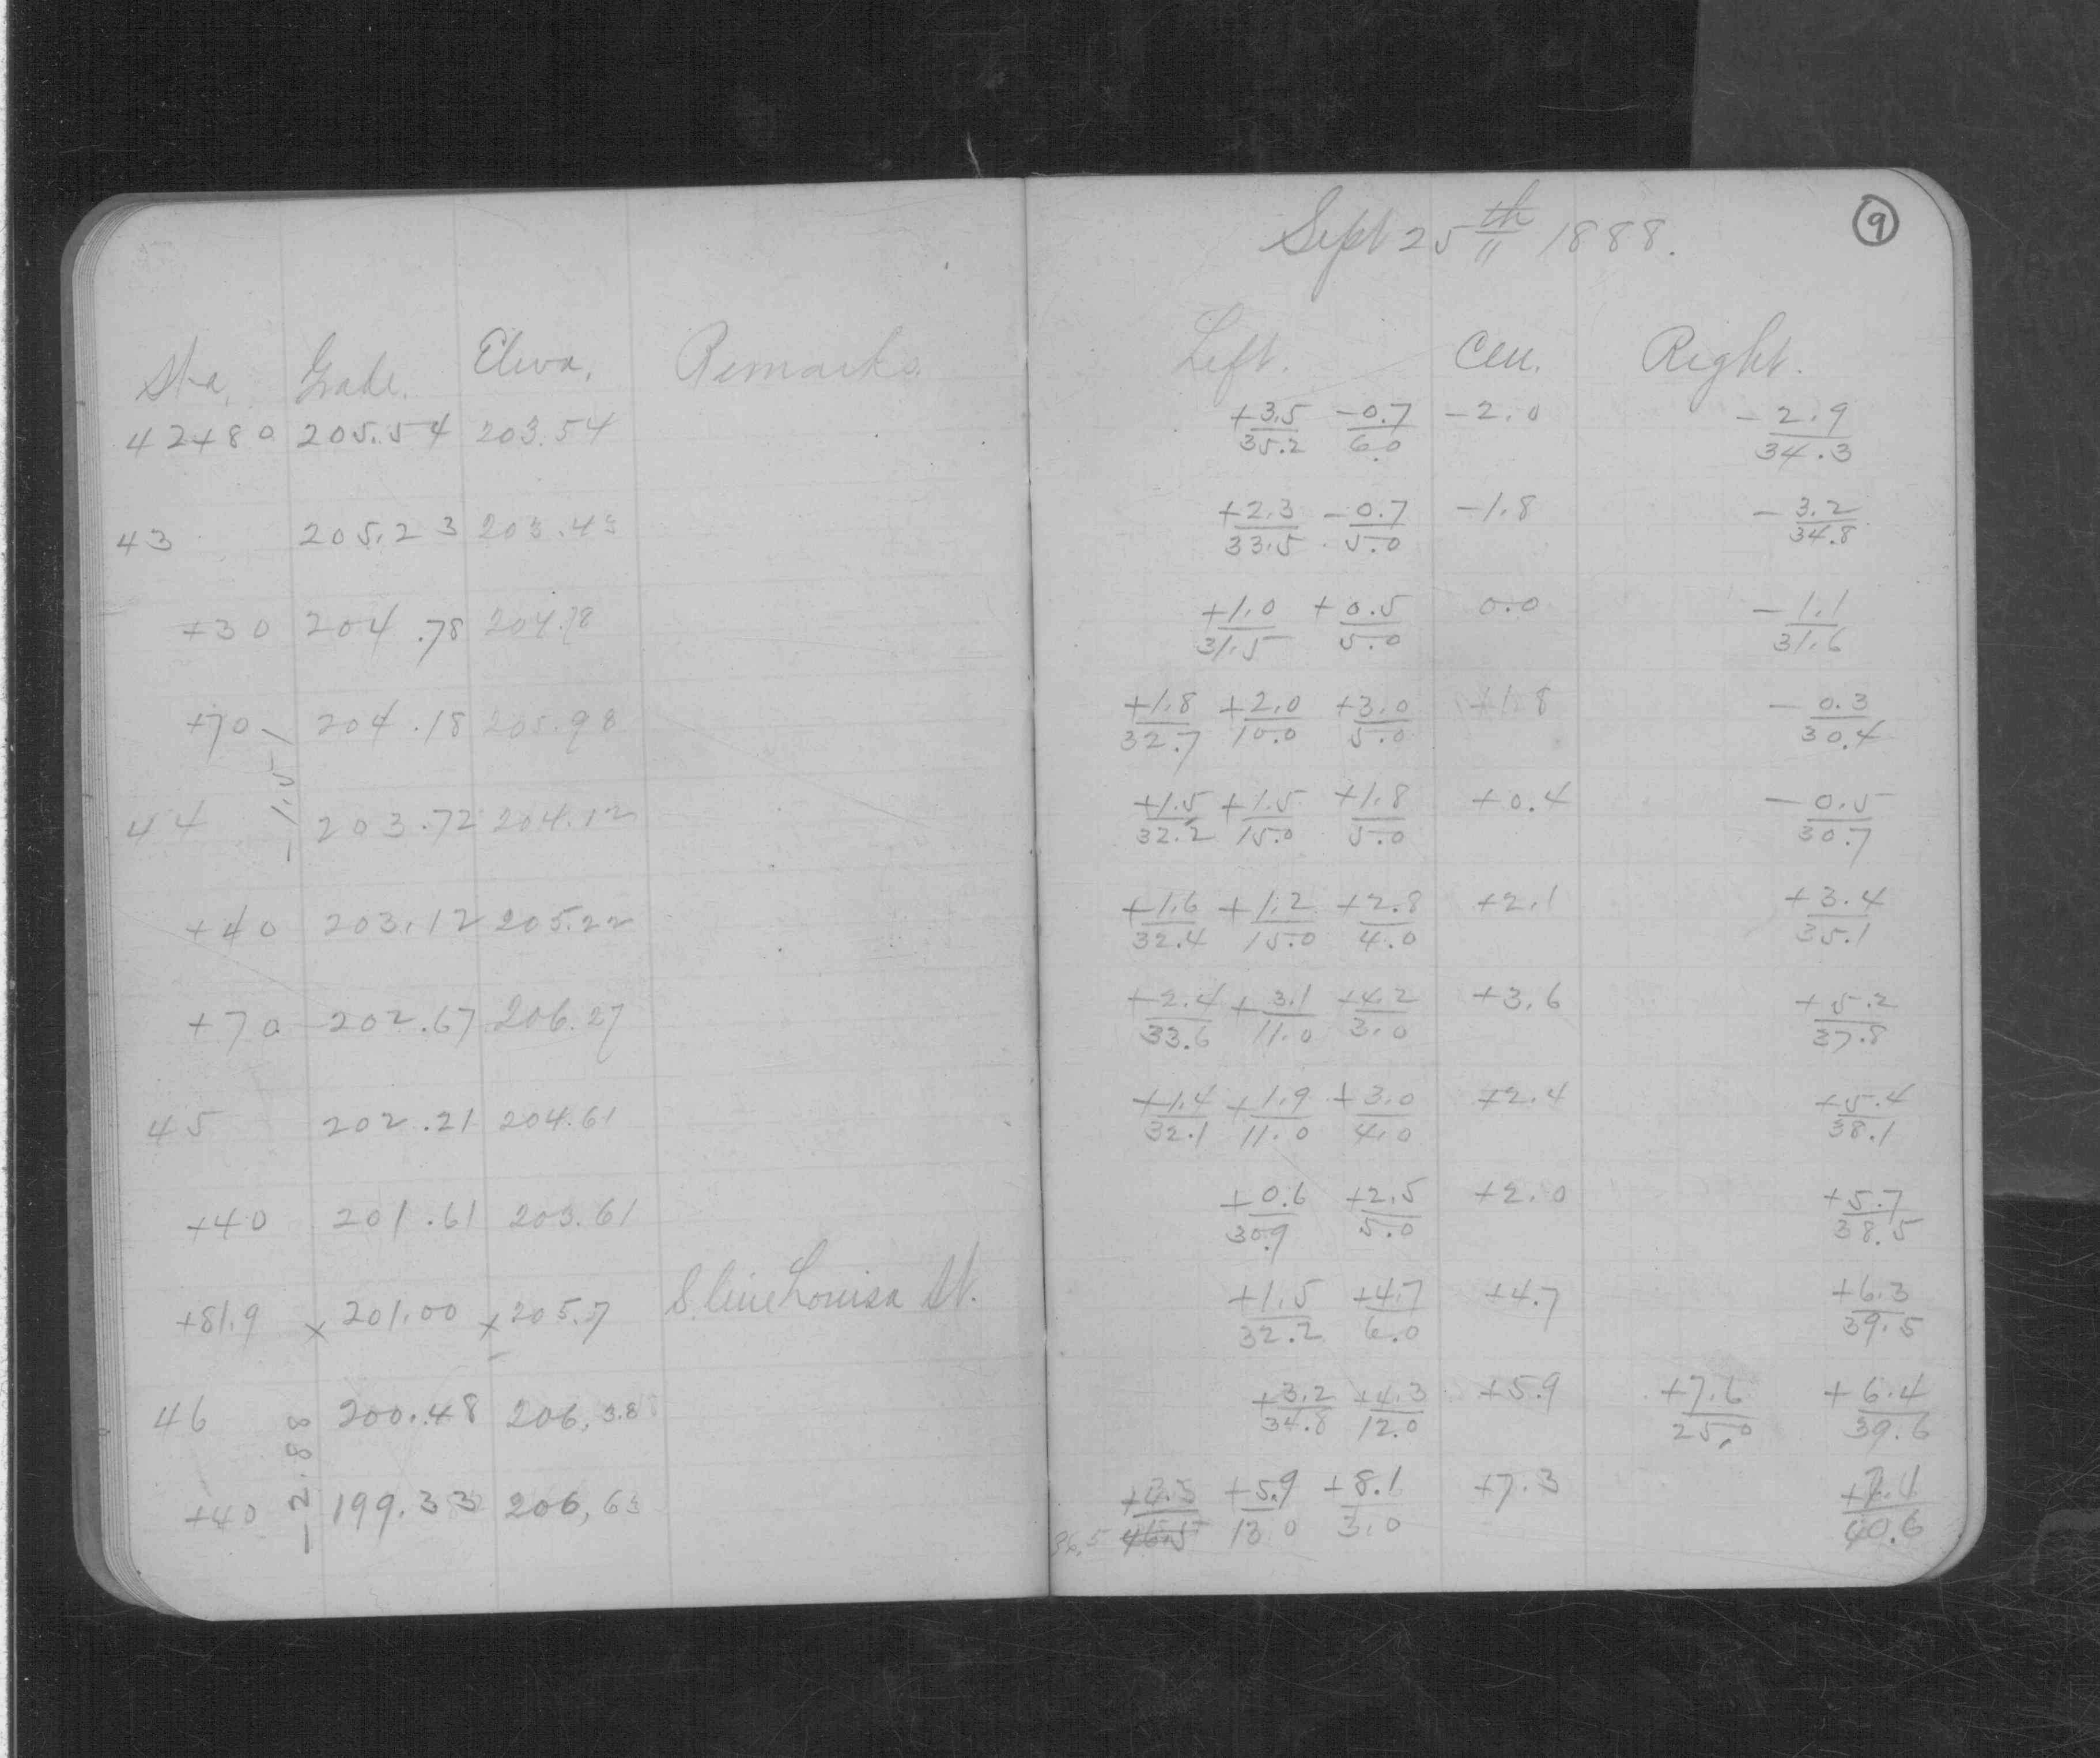 Sept 25th 1888.
9
Sta. Grade. Eleva. Remarks. Left. Cen. Right.
42+80 205.54 203.54 +3.5/35.2 -0.7/6.0 -2.0 -2.9/34.3
43 205.23 203.43 +2.3/33.5 -0.7/5.0 -1.8 -3.2/34.8
+30 204.78 204.78 +1.0/31.5 +0.5/5.0 0.0 -1.1/31.6
+70 204.18 205.98 +1.8/32.7 +2.0/10.0 +3.0/5.0 +1.8 -0.3/30.4
-1.51
44 203.72 204.12 +1.5/32.2 +1.5/15.0 +1.8/5.0 +0.4 -0.5/30.7
+40 203.12 205.22 +1.6/32.4 +1.2/15.0 +2.8/4.0 +2.1 +3.4/35.1
+70 202.67 206.27 +2.4/33.6 +3.1/11.0 +4.2/3.0 +3.6 +5.2/37.8
45 202.21 204.61 +1.4/32.1 +1.9/11.0 +3.0/4.0 +2.4 +5.4/38.1
+40 201.61 203.61 +0.6/30.9 +2.5/5.0 +2.0 +5.7/38.5
+81.9 x 201.00 x 205.7 S. line Louisa St. +1.5/32.2 +4.7/6.0 +4.7 +6.3/39.5
46 200.48 206.38 +3.2/34.8 +4.3/12.0 +5.9 +7.6/25.0 +6.4/39.6
-2.88
+40 199.33 206.63 36.5 46.5 +5.9/13.0 +8.1/3.0 +7.3 +7.1/40.6